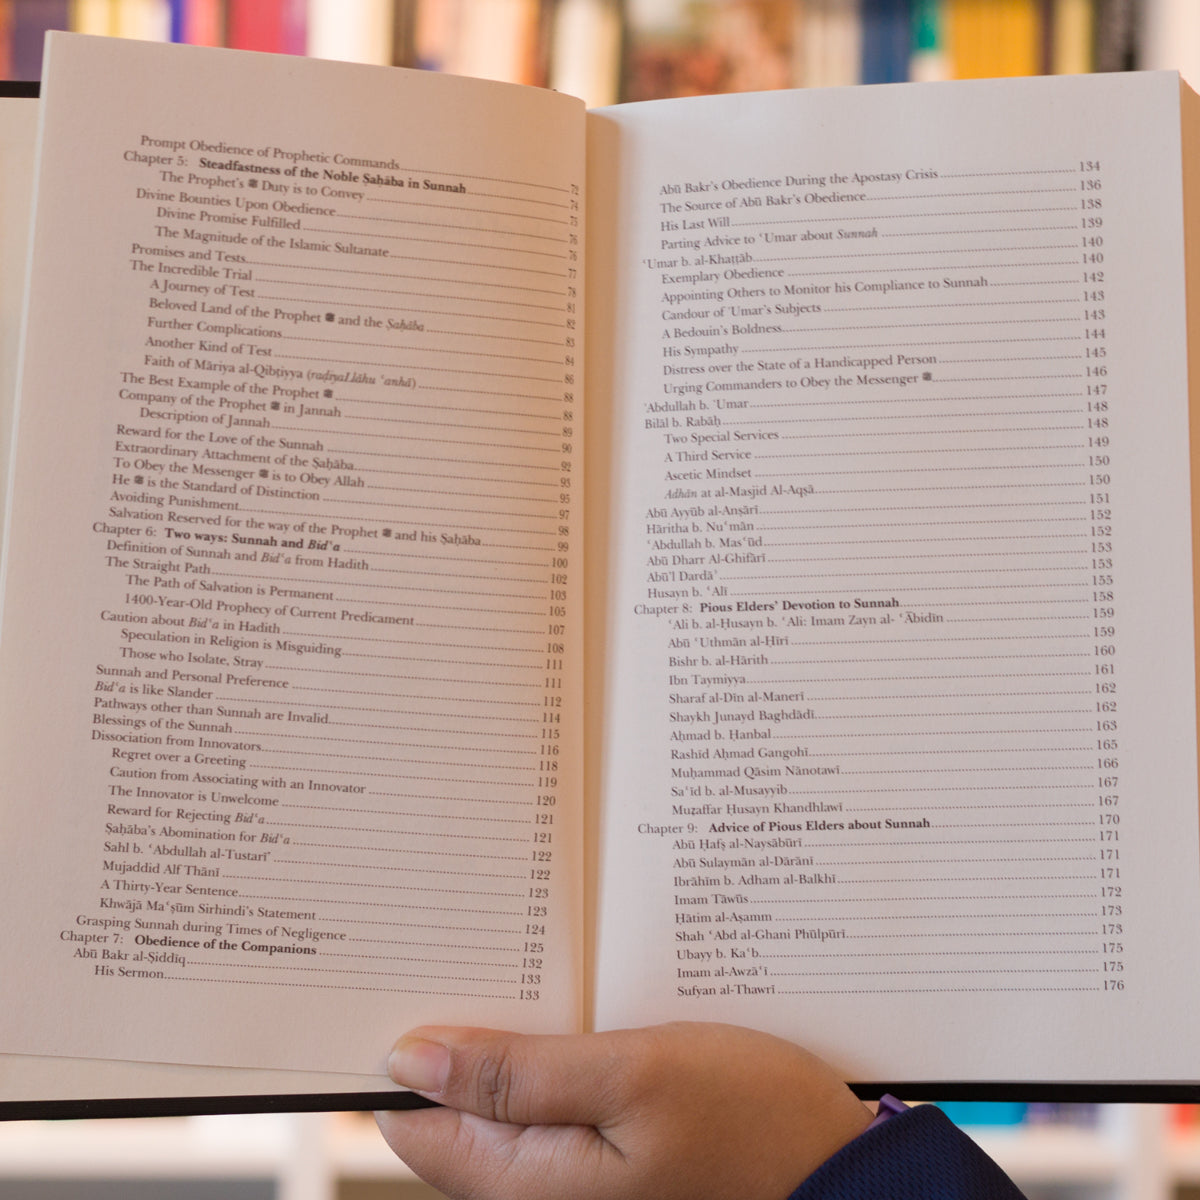 Prompt Obedience of Prophetic Commands 72
Chapter 5: Steadfastness of the Noble Ṣaḥāba in Sunnah 74
The Prophet's ﷺ Duty is to Convey 75
Divine Bounties Upon Obedience 76
Divine Promise Fulfilled 76
The Magnitude of the Islamic Sultanate 77
Promises and Tests 78
The Incredible Trial 81
A Journey of Test 82
Beloved Land of the Prophet ﷺ and the Ṣaḥāba 83
Further Complications 84
Another Kind of Test 86
Faith of Māriya al-Qibṭiyya (raḍiyaLlāhu ʿanhā) 88
The Best Example of the Prophet ﷺ 88
Company of the Prophet ﷺ in Jannah 89
Description of Jannah 90
Reward for the Love of the Sunnah 92
Extraordinary Attachment of the Ṣaḥāba 93
To Obey the Messenger ﷺ is to Obey Allah 95
He ﷺ is the Standard of Distinction 97
Avoiding Punishment 98
Salvation Reserved for the way of the Prophet ﷺ and his Ṣaḥāba 99
Chapter 6: Two ways: Sunnah and Bidʿa 100
Definition of Sunnah and Bidʿa from Hadith 102
The Straight Path 103
The Path of Salvation is Permanent 105
1400-Year-Old Prophecy of Current Predicament 107
Caution about Bidʿa in Hadith 108
Speculation in Religion is Misguiding 111
Those who Isolate, Stray 111
Sunnah and Personal Preference 112
Bidʿa is like Slander 114
Pathways other than Sunnah are Invalid 115
Blessings of the Sunnah 116
Dissociation from Innovators 118
Regret over a Greeting 119
Caution from Associating with an Innovator 120
The Innovator is Unwelcome 121
Reward for Rejecting Bidʿa 121
Ṣaḥāba's Abomination for Bidʿa 122
Sahl b. ʿAbdullah al-Tustarī 122
Mujaddid Alf Thānī 123
A Thirty-Year Sentence 123
Khwājā Maʿṣūm Sirhindi's Statement 124
Grasping Sunnah during Times of Negligence 125
Chapter 7: Obedience of the Companions 132
Abū Bakr al-Ṣiddīq 133
His Sermon 133
Abū Bakr's Obedience During the Apostasy Crisis 134
The Source of Abū Bakr's Obedience 136
His Last Will 138
Parting Advice to ʿUmar about Sunnah 139
ʿUmar b. al-Khaṭṭāb 140
Exemplary Obedience 140
Appointing Others to Monitor his Compliance to Sunnah 142
Candour of ʿUmar's Subjects 143
A Bedouin's Boldness 143
His Sympathy 144
Distress over the State of a Handicapped Person 145
Urging Commanders to Obey the Messenger ﷺ 146
ʿAbdullah b. ʿUmar 147
Bilāl b. Rabāḥ 148
Two Special Services 148
A Third Service 149
Ascetic Mindset 150
Adhān at al-Masjid Al-Aqṣā 150
Abū Ayyūb al-Anṣārī 151
Hāritha b. Nuʿmān 152
ʿAbdullah b. Masʿūd 152
Abū Dharr Al-Ghifārī 153
Abū'l Dardāʾ 153
Husayn b. ʿAlī 155
Chapter 8: Pious Elders' Devotion to Sunnah 158
ʿAli b. al-Ḥusayn b. ʿAli: Imam Zayn al- ʿĀbidīn 159
Abū ʿUthmān al-Ḥīrī 159
Bishr b. al-Hārith 160
Ibn Taymiyya 161
Sharaf al-Dīn al-Manerī 162
Shaykh Junayd Baghdādī 162
Aḥmad b. Ḥanbal 163
Rashīd Aḥmad Gangohī 165
Muḥammad Qāsim Nānotawī 166
Saʿīd b. al-Musayyib 167
Muẓaffar Ḥusayn Khandhlawī 167
Chapter 9: Advice of Pious Elders about Sunnah 170
Abū Ḥafṣ al-Naysābūrī 171
Abū Sulaymān al-Dārānī 171
Ibrāhīm b. Adham al-Balkhī 171
Imam Tāwūs 172
Ḥātim al-Aṣamm 173
Shah ʿAbd al-Ghani Phūlpūrī 173
Ubayy b. Kaʿb 175
Imam al-Awzāʿī 175
Sufyan al-Thawrī 176